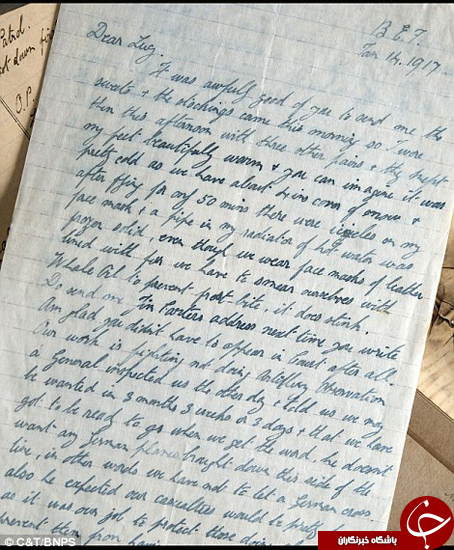 Patrol.
ot down, fi
O.P.
B.E.F.
Jan 14. 1917
Dear Lug.
It was awfully good of you to send me the
sweets & the stockings came this morning so I wore
them this afternoon with three other pairs & they kept
my feet beautifully warm & you can imagine it was
pretty cold as we have about 4 ins cover of snow &
after flying for only 50 mins there were icicles on my
face mask & a pipe in my radiator of hot water was
frozen solid, even though we wear face masks of leather
lined with fur we have to smear ourselves with
Whale Oil to prevent frost bite, it does stink.
Do send me Jim Carters address next time you write
Am glad you didn't have to appear in Court after all.
Our work is fighting not doing Artillery Observation
a General inspected us the other day & told us we may
be wanted in 3 months 3 weeks or 3 days & that we have
got to be ready to go when we get the word. he doesn't
want any German planes brought down this side of the
line, in other words we have not to let a German cross
also he expected our casualties would be pretty
as it was our job to protect those doing
prevent them from
© C&T/BNPS
باشگاه خبرنگاران